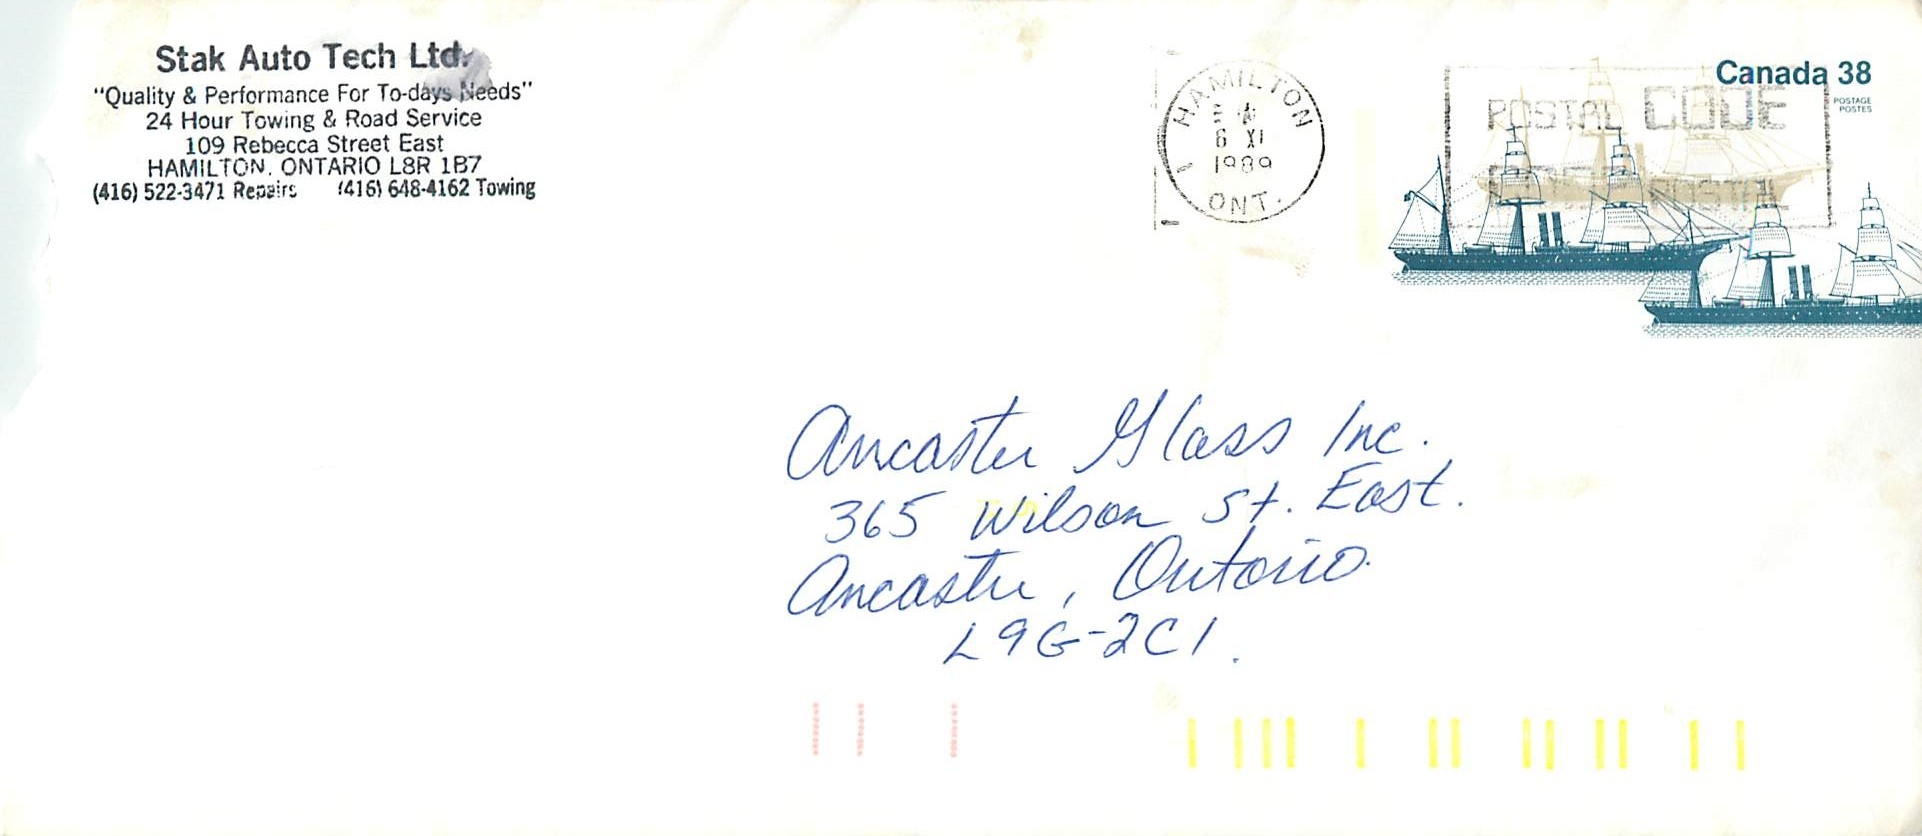 Stak Auto Tech Ltd.
"Quality & Performance For To-days Needs"
24 Hour Towing & Road Service
109 Rebecca Street East
HAMILTON, ONTARIO L8R 1B7
(416) 522-3471 Repairs (416) 648-4162 Towing
HAMILTON
6 XI
1989
ONT.
POSTAL CODE
CODE POSTAL
Canada 38
POSTAGE
POSTES
Ancaster Glass Inc.
365 Wilson St. East.
Ancaster, Ontario.
L9G-2C1.